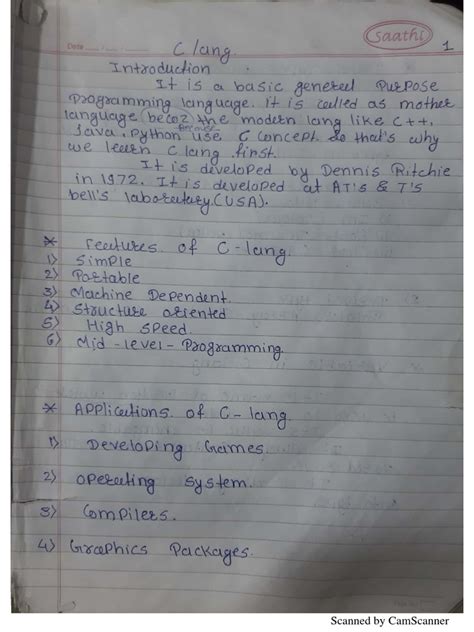 saathi
Date ..... / ..... / .....
1
C lang.
Introduction
It is a basic general purpose
programming language. It is called as mother
language (becoz) the modern lang like C++,
Java, Python use C concept so that's why
we learn C lang first.
It is developed by Dennis Ritchie
in 1972. It is developed at AT's & T's
bell's laboratary.(USA).
* Features of C-lang.
1) Simple
2) Portable
3) Machine Dependent.
4) Structure oriented
5) High speed.
6) Mid-level-Programming.
* Applications of C-lang.
1) Developing Games.
2) Operating system.
3) Compilers.
4) Graphics Packages.
Scanned by CamScanner